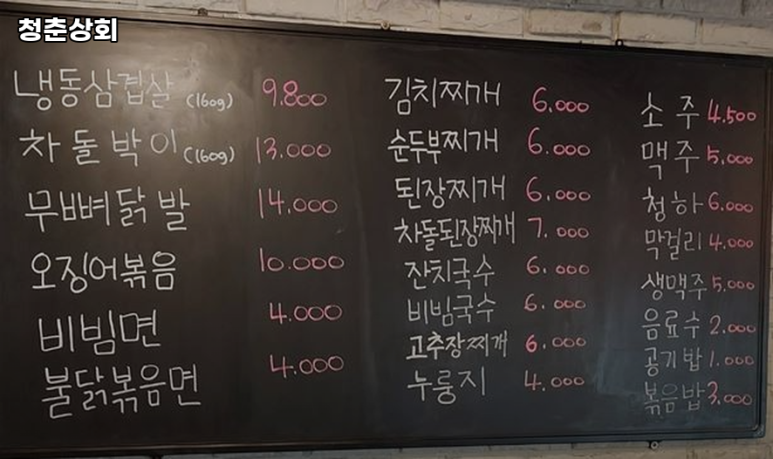 청춘상회
냉동삼겹살 (160g) 9.800
차돌박이 (160g) 13.000
무뼈닭발 14.000
오징어볶음 10.000
비빔면 4.000
불닭볶음면 4.000
김치찌개 6.000
순두부찌개 6.000
된장찌개 6.000
차돌된장찌개 7.000
잔치국수 6.000
비빔국수 6.000
고추장찌개 6.000
누룽지 4.000
소주 4.500
맥주 5.000
청하 6.000
막걸리 4.000
생맥주 5.000
음료수 2.000
공기밥 1.000
볶음밥 3.000